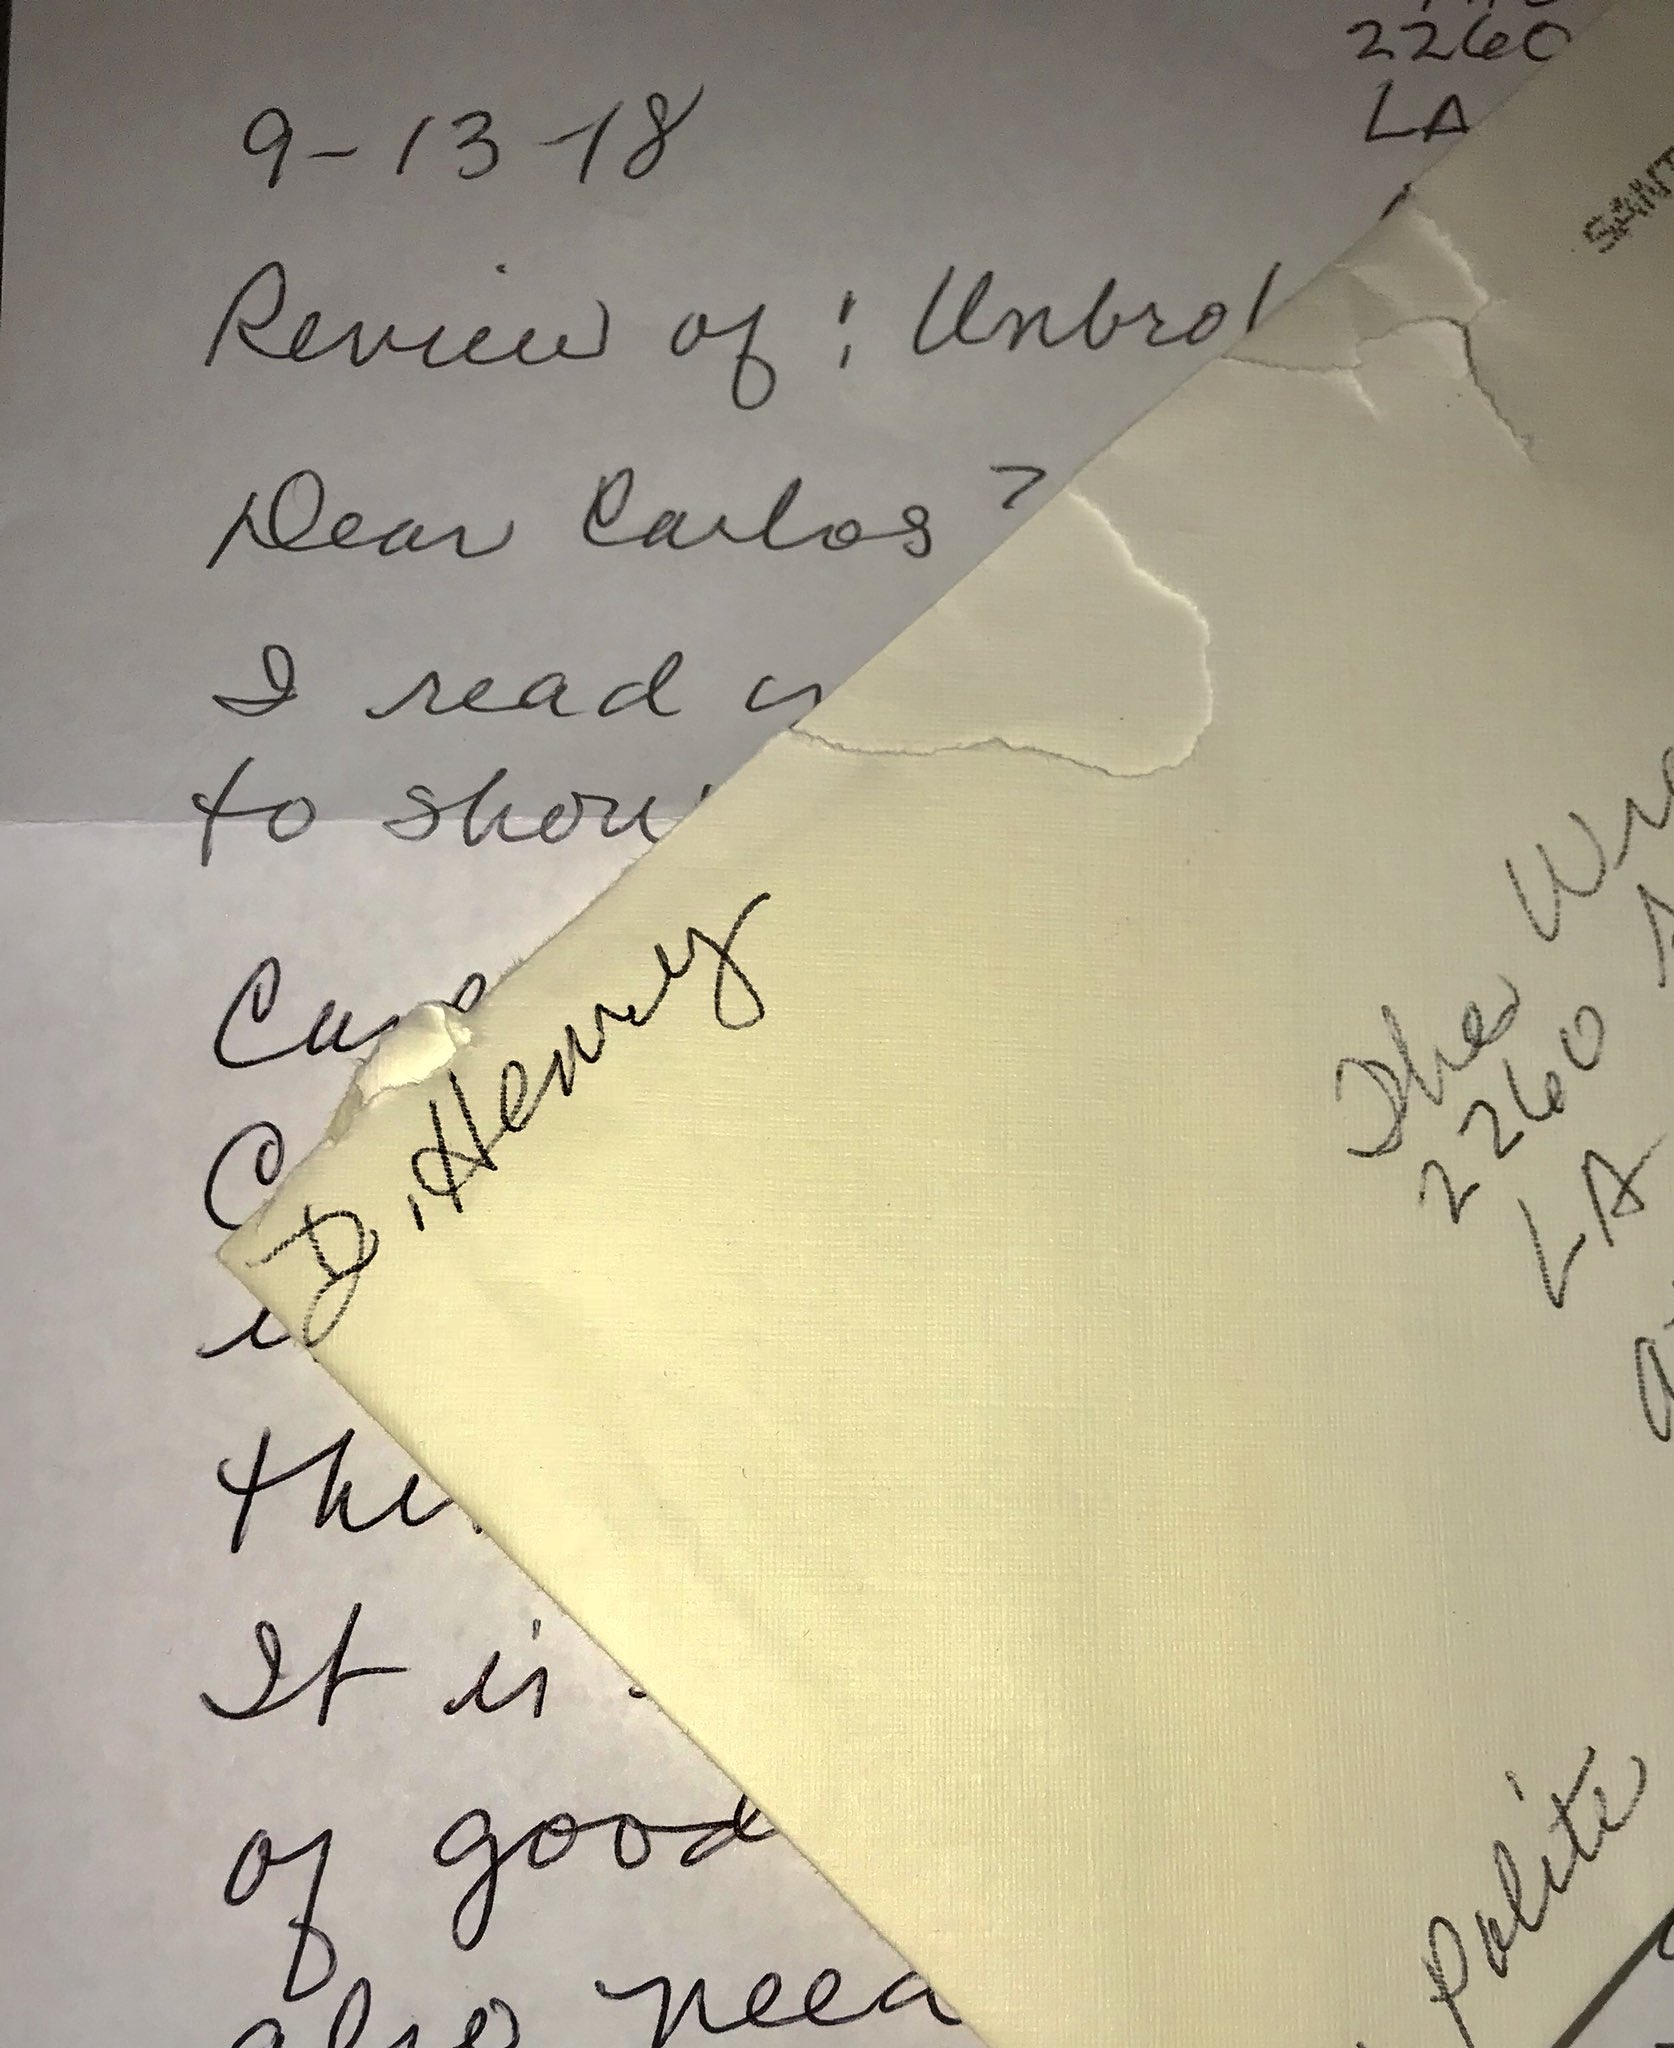 2260
LA
9-13-18
Review of: Unbro
Dear Carlos
I read
to show
the
It is
of good
also need
D. Henry
SANT
The Wr
2260
LA
Polite